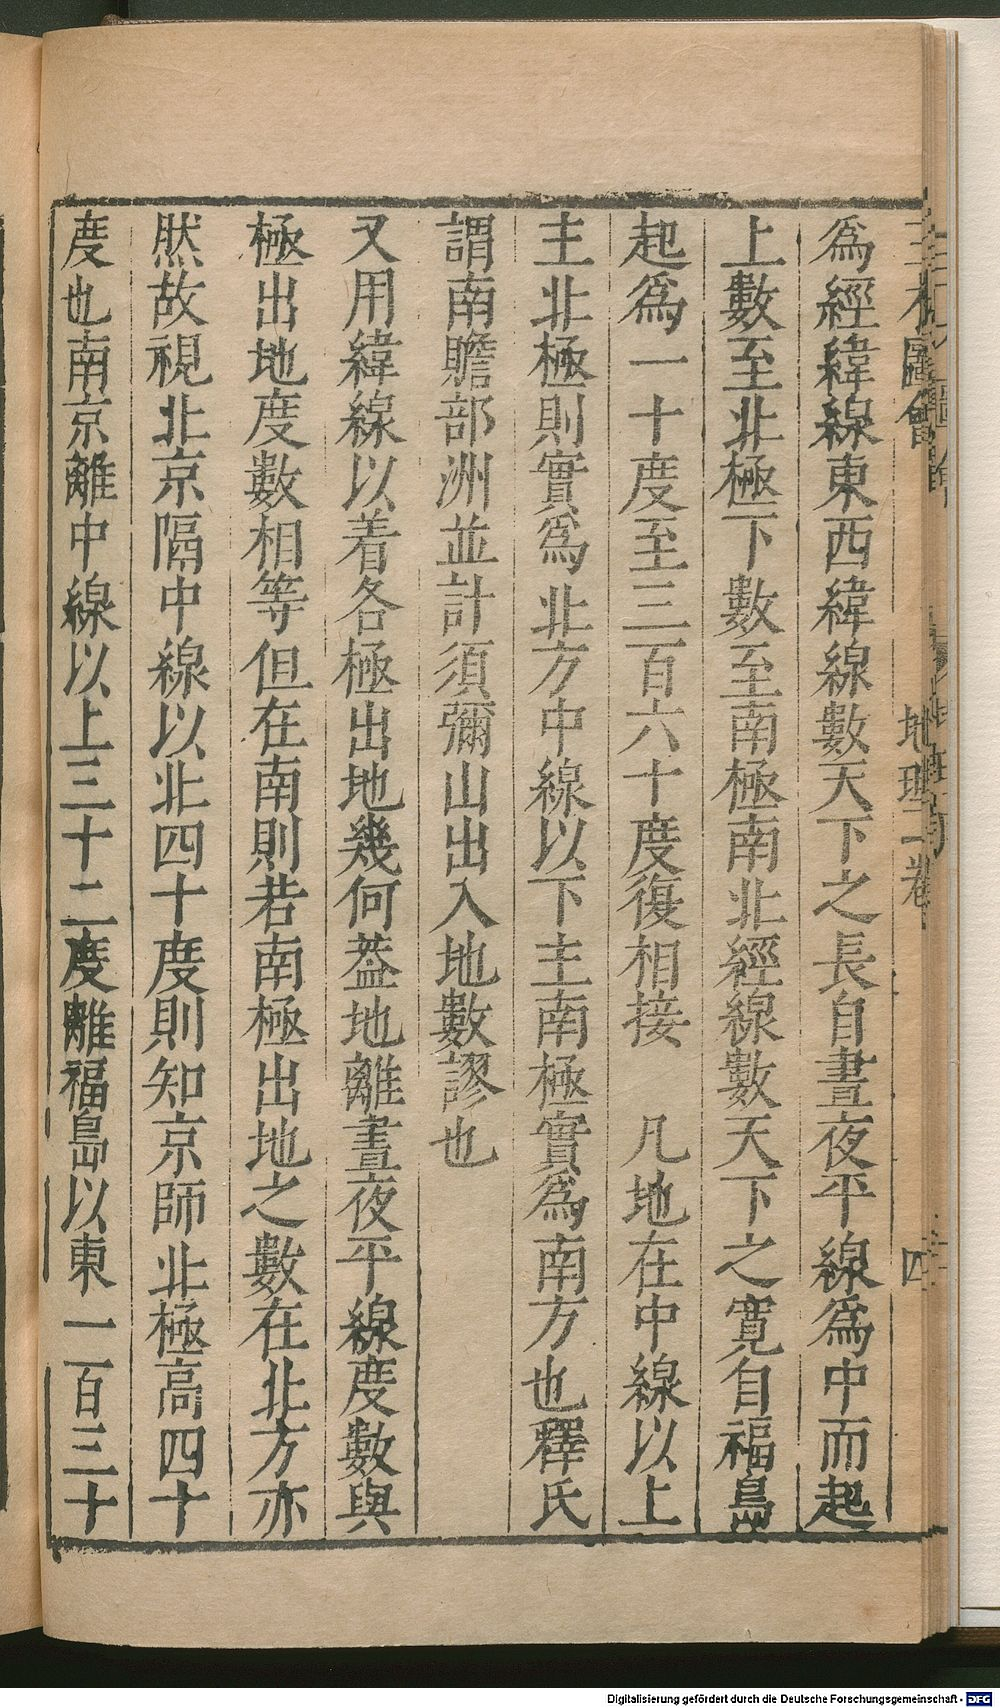 三才圖會 地理一卷 四
為經緯線東西緯線數天下之長自晝夜平線為中而起
上數至北極下數至南極南北經線數天下之寬自福島
起為一十度至三百六十度復相接 凡地在中線以上
主北極則實為北方中線以下主南極實為南方也釋氏
謂南贍部洲並計須彌山出入地數謬也
又用緯線以着各極出地幾何葢地離晝夜平線度數與
極出地度數相等但在南則若南極出地之數在北方亦
然故視北京隔中線以北四十度則知京師北極高四十
度也南京離中線以上三十二度離福島以東一百三十
Digitalisierung gefördert durch die Deutsche Forschungsgemeinschaft - DFG